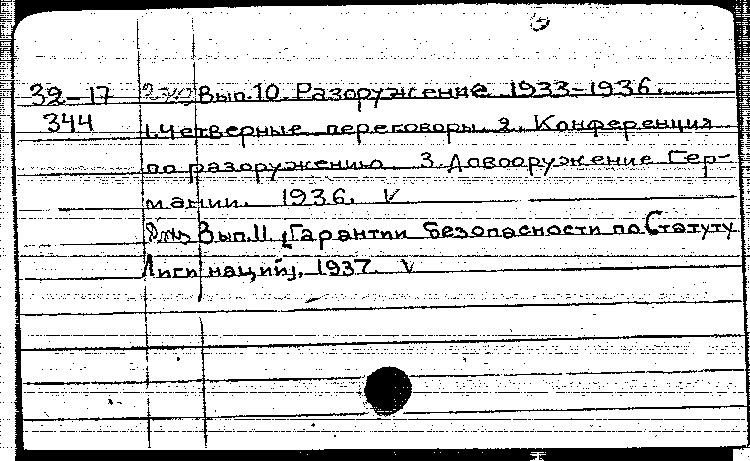 39-17 2 экз Вып.10. Разоружение 1933-1936.
344 1. Четверные переговоры. 2. Конференция
по разоружению. 3. Довооружение Гер-
мании. 1936. V
2 экз Вып.11. [Гарантии безопасности по Статуту
Лиги наций]. 1937. V